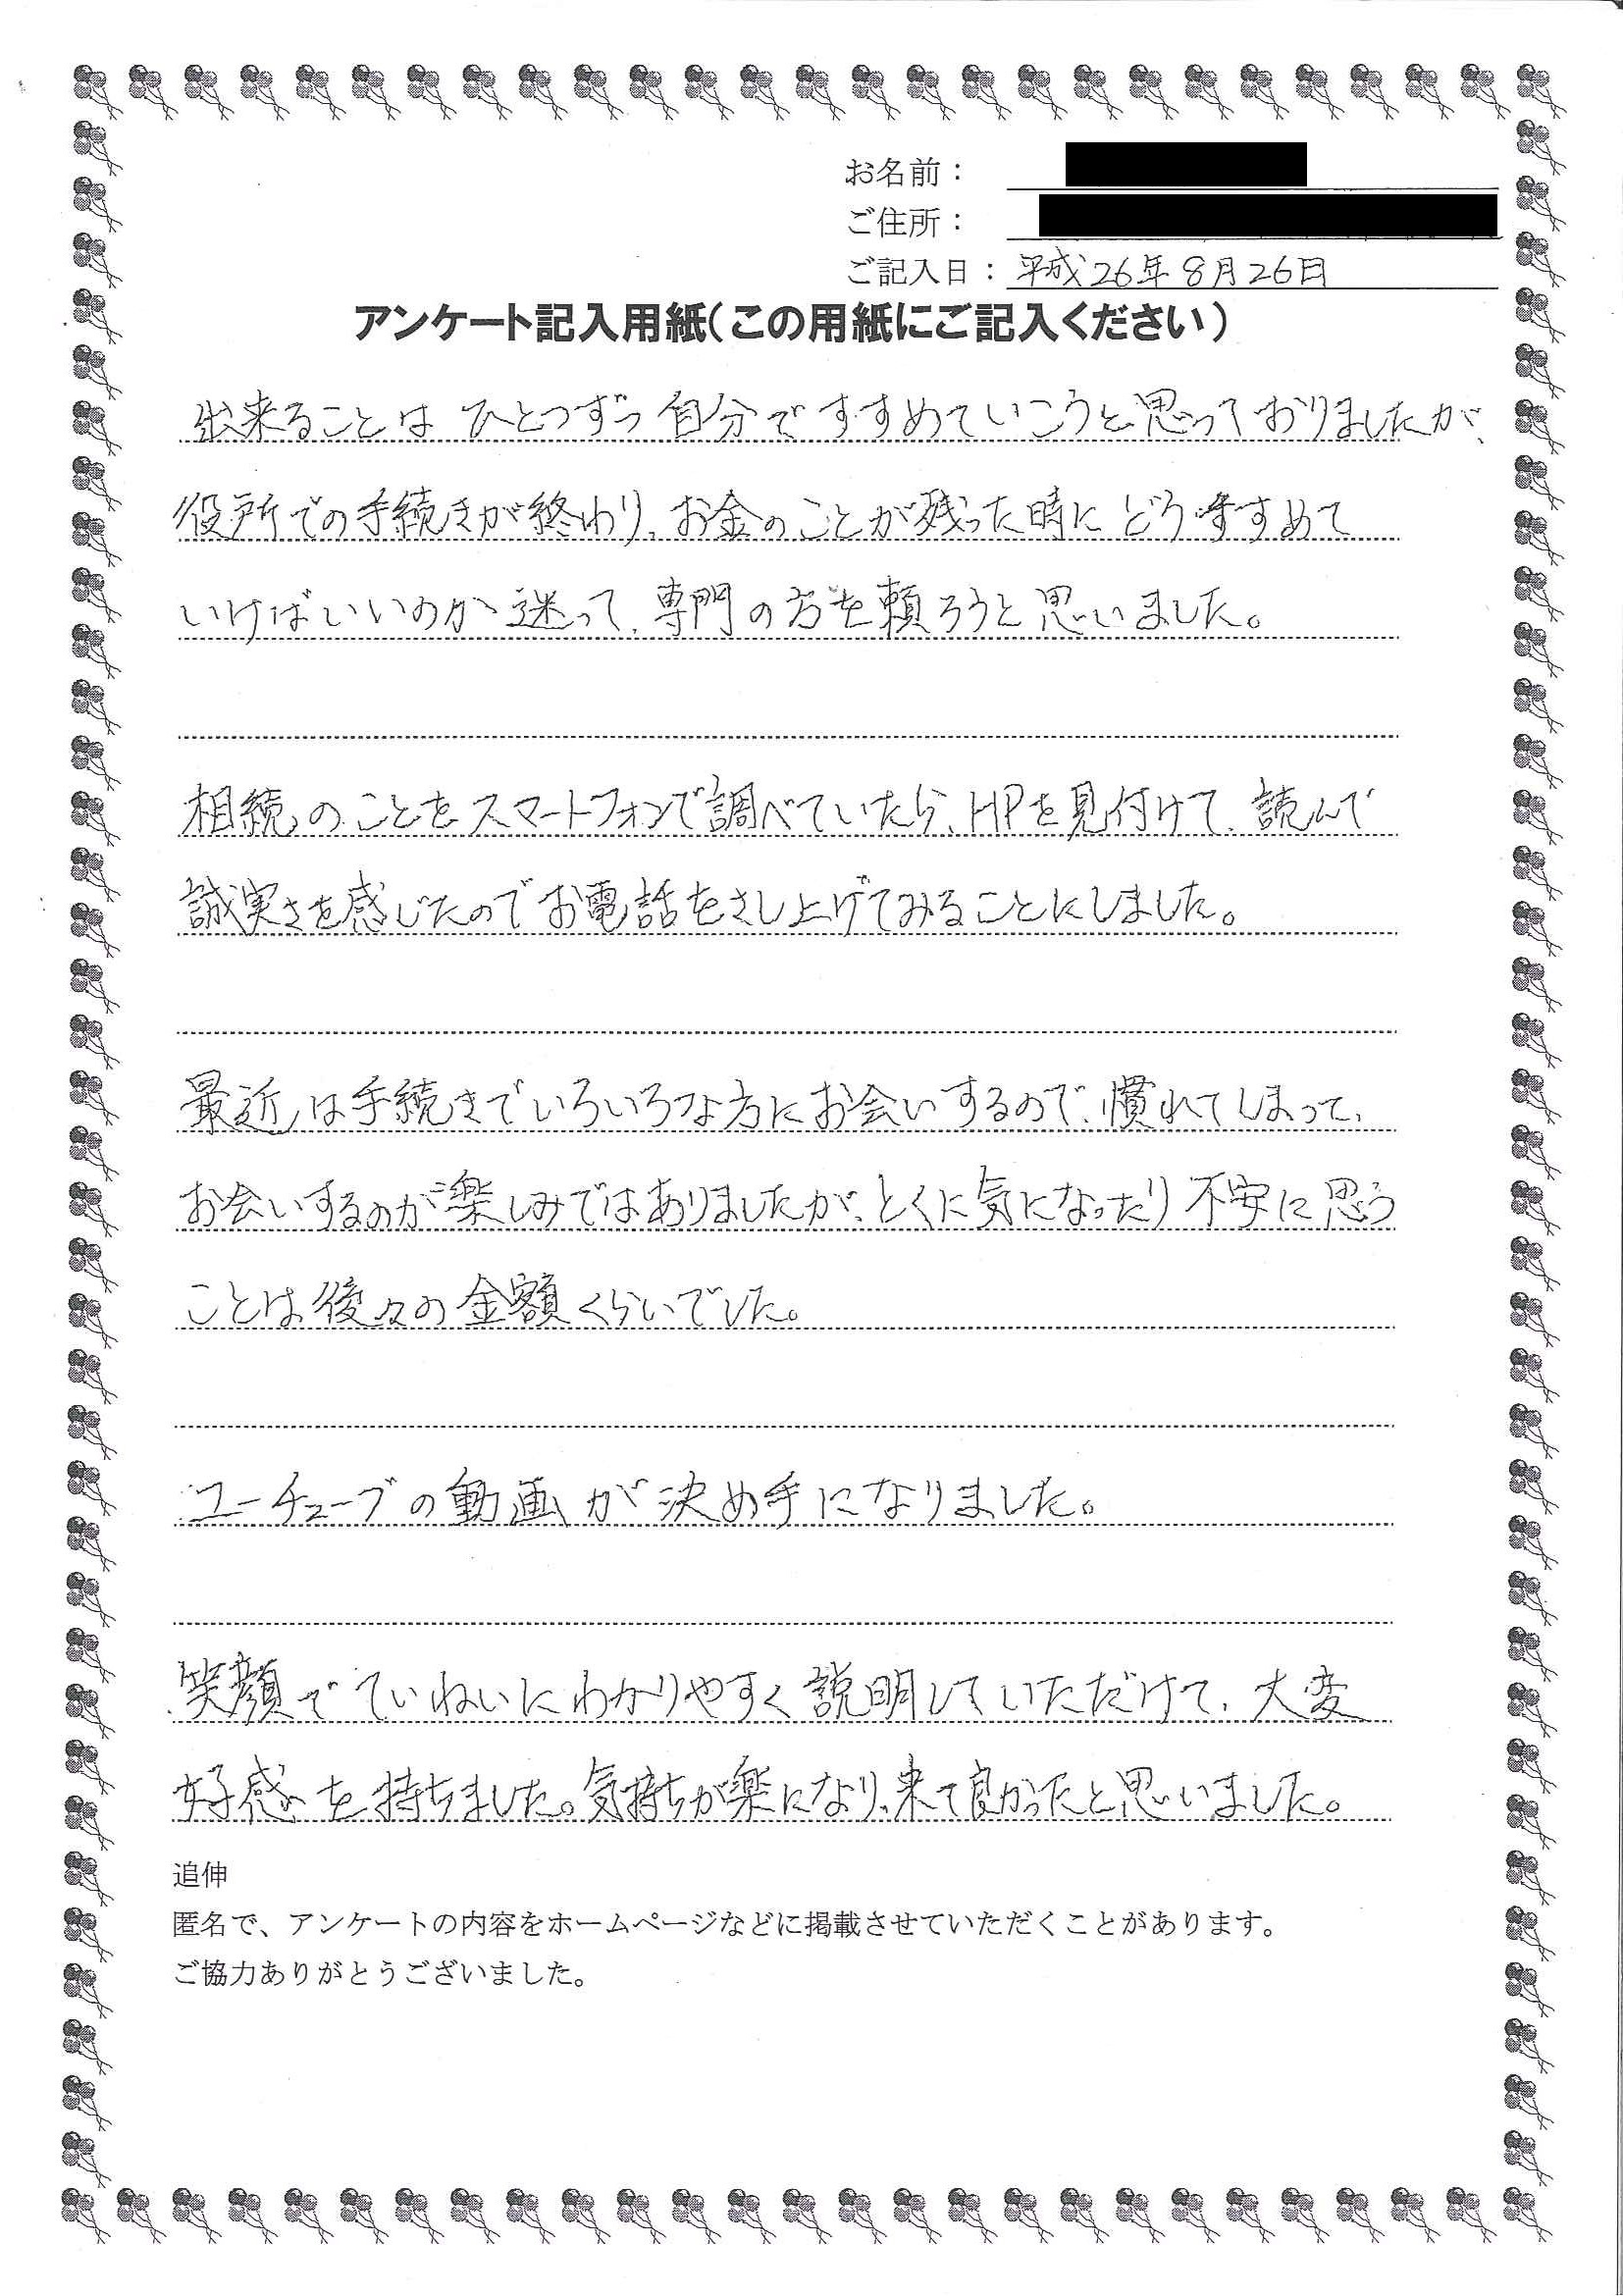 お名前：
ご住所：
ご記入日：平成26年8月26日
アンケート記入用紙(この用紙にご記入ください)
出来ることは ひとつずつ 自分で すすめていこうと思っておりましたが、
役所での手続きが終わり、お金のことが残った時に どうすすめて
いけばいいのか 迷って、専門の方を頼ろうと思いました。
相続のことをスマートフォンで調べていたら、HPを見付けて、読んで
誠実さを感じたのでお電話をさし上げてみることにしました。
最近は手続きでいろいろな方にお会いするので、慣れてしまって、
お会いするのが楽しみではありましたが、とくに気になったり 不安に思う
ことは後々の金額くらいでした。
ユーチューブの動画が決め手になりました。
笑顔で ていねいに わかりやすく説明していただけて、大変
好感を持ちました。気持ちが楽になり、来て良かったと思いました。
追伸
匿名で、アンケートの内容をホームページなどに掲載させていただくことがあります。
ご協力ありがとうございました。